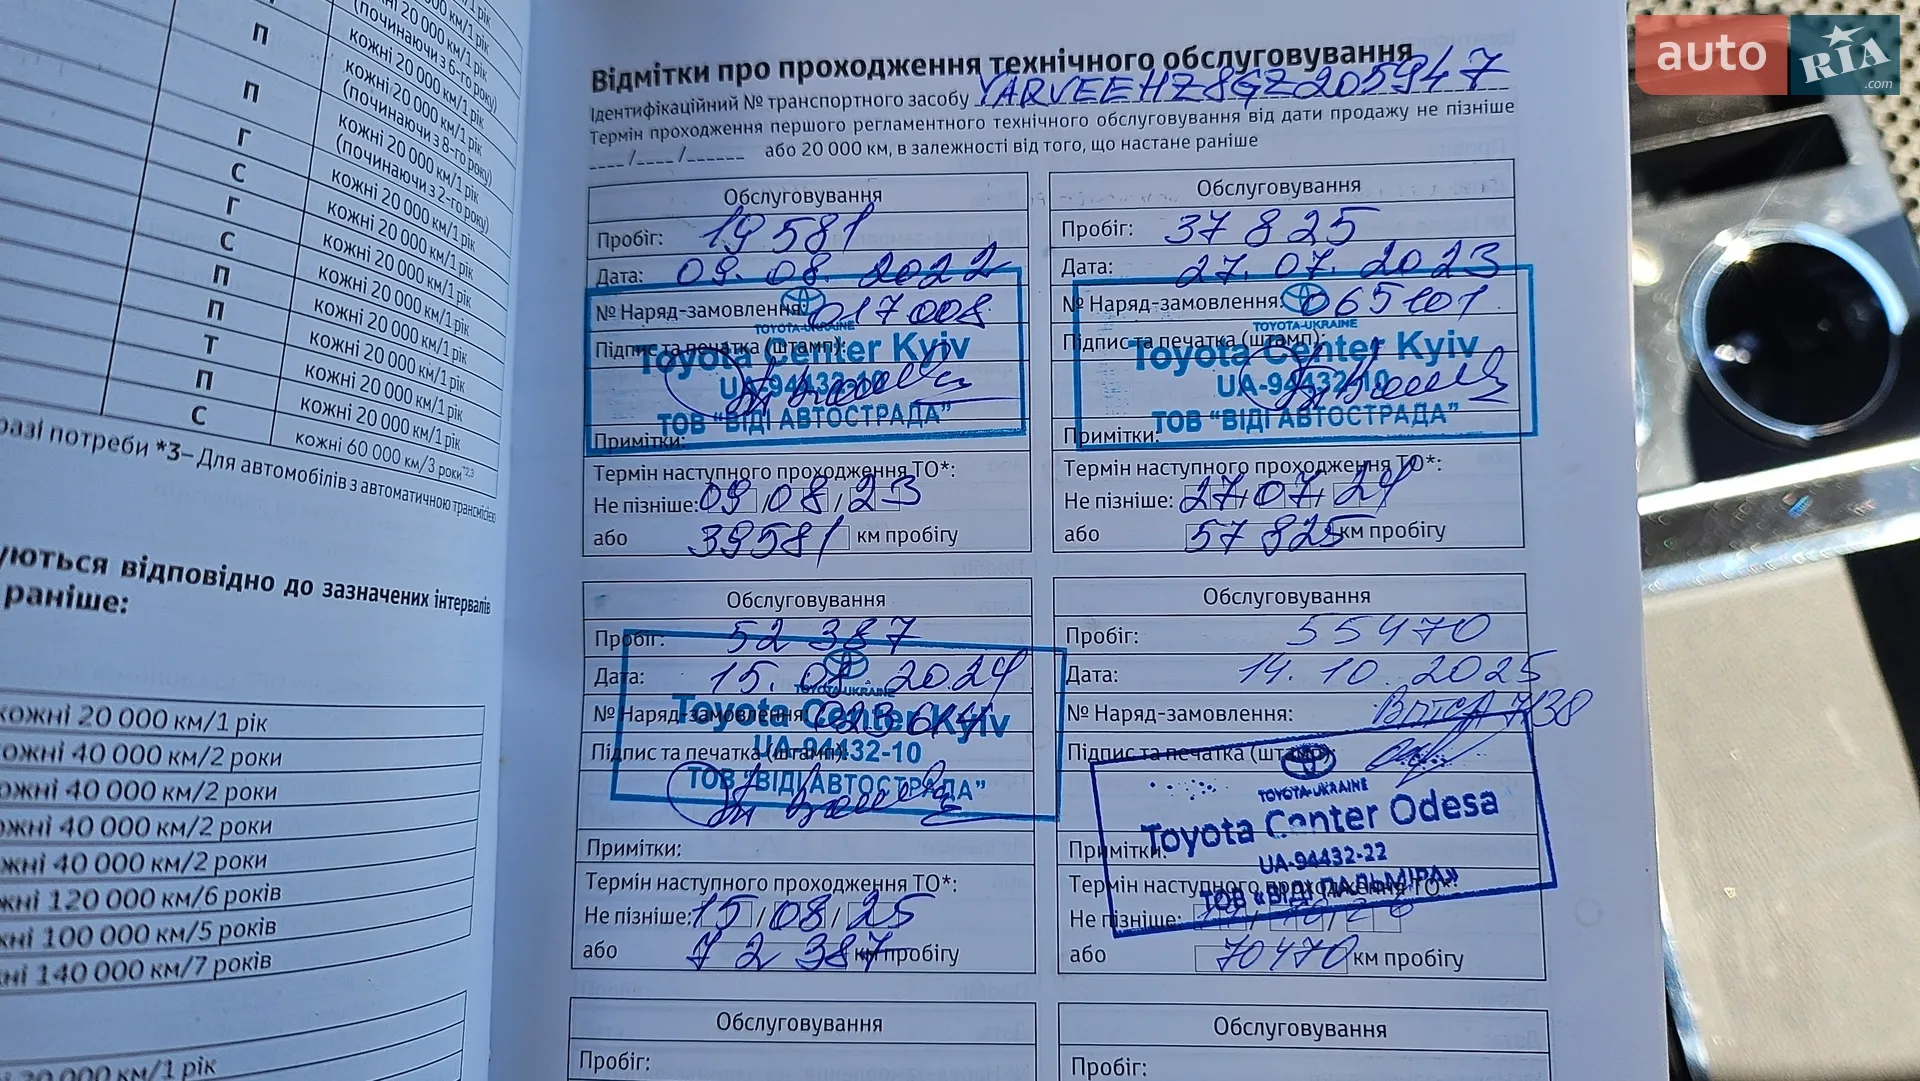 auto RIA.com
Відмітки про проходження технічного обслуговування
Ідентифікаційний № транспортного засобу YARVEEHZ8GZ205947
Термін проходження першого регламентного технічного обслуговування від дати продажу не пізніше
____/____/______ або 20 000 км, в залежності від того, що настане раніше
Обслуговування
Пробіг: 19 581
Дата: 09.08.2022
№ Наряд-замовлення: 017008
TOYOTA-UKRAINE
Підпис та печатка (штамп):
Toyota Center Kyiv
UA-94432-10
ТОВ "ВІДІ АВТОСТРАДА"
Примітки:
Термін наступного проходження ТО*:
Не пізніше: 09/08/23
або 39581 км пробігу
Обслуговування
Пробіг: 37 825
Дата: 27.07.2023
№ Наряд-замовлення: 065101
TOYOTA-UKRAINE
Підпис та печатка (штамп):
Toyota Center Kyiv
UA-94432-10
ТОВ "ВІДІ АВТОСТРАДА"
Примітки:
Термін наступного проходження ТО*:
Не пізніше: 27/07/24
або 57 825 км пробігу
Обслуговування
Пробіг: 52 387
Дата: 15.08.2024
№ Наряд-замовлення:
TOYOTA-UKRAINE
Toyota Center Kyiv
Підпис та печатка (штамп):
UA-94432-10
ТОВ "ВІДІ АВТОСТРАДА"
Примітки:
Термін наступного проходження ТО*:
Не пізніше: 15/08/25
або 72 387 км пробігу
Обслуговування
Пробіг: 55470
Дата: 14.10.2025
№ Наряд-замовлення:
Підпис та печатка (штамп):
TOYOTA-UKRAINE
Toyota Center Odesa
Примітки:
UA-94432-22
Термін наступного проходження ТО*:
ТОВ «ВІДІ ПАЛЬМІРА»
Не пізніше:
або 70470 км пробігу
Обслуговування
Пробіг:
Обслуговування
Пробіг:
П кожні 20 000 км/1 рік
(починаючи з 6-го року)
П кожні 20 000 км/1 рік
(починаючи з 8-го року)
Г кожні 20 000 км/1 рік
(починаючи з 2-го року)
С кожні 20 000 км/1 рік
Г кожні 20 000 км/1 рік
С кожні 20 000 км/1 рік
П кожні 20 000 км/1 рік
П кожні 20 000 км/1 рік
Т кожні 20 000 км/1 рік
П кожні 20 000 км/1 рік
С кожні 60 000 км/3 роки*2,3
разі потреби *3– Для автомобілів з автоматичною трансмісією
ються відповідно до зазначених інтервалів
раніше:
кожні 20 000 км/1 рік
кожні 40 000 км/2 роки
кожні 40 000 км/2 роки
кожні 40 000 км/2 роки
кожні 40 000 км/2 роки
кожні 120 000 км/6 років
кожні 100 000 км/5 років
кожні 140 000 км/7 років
20 000 км/1 рік